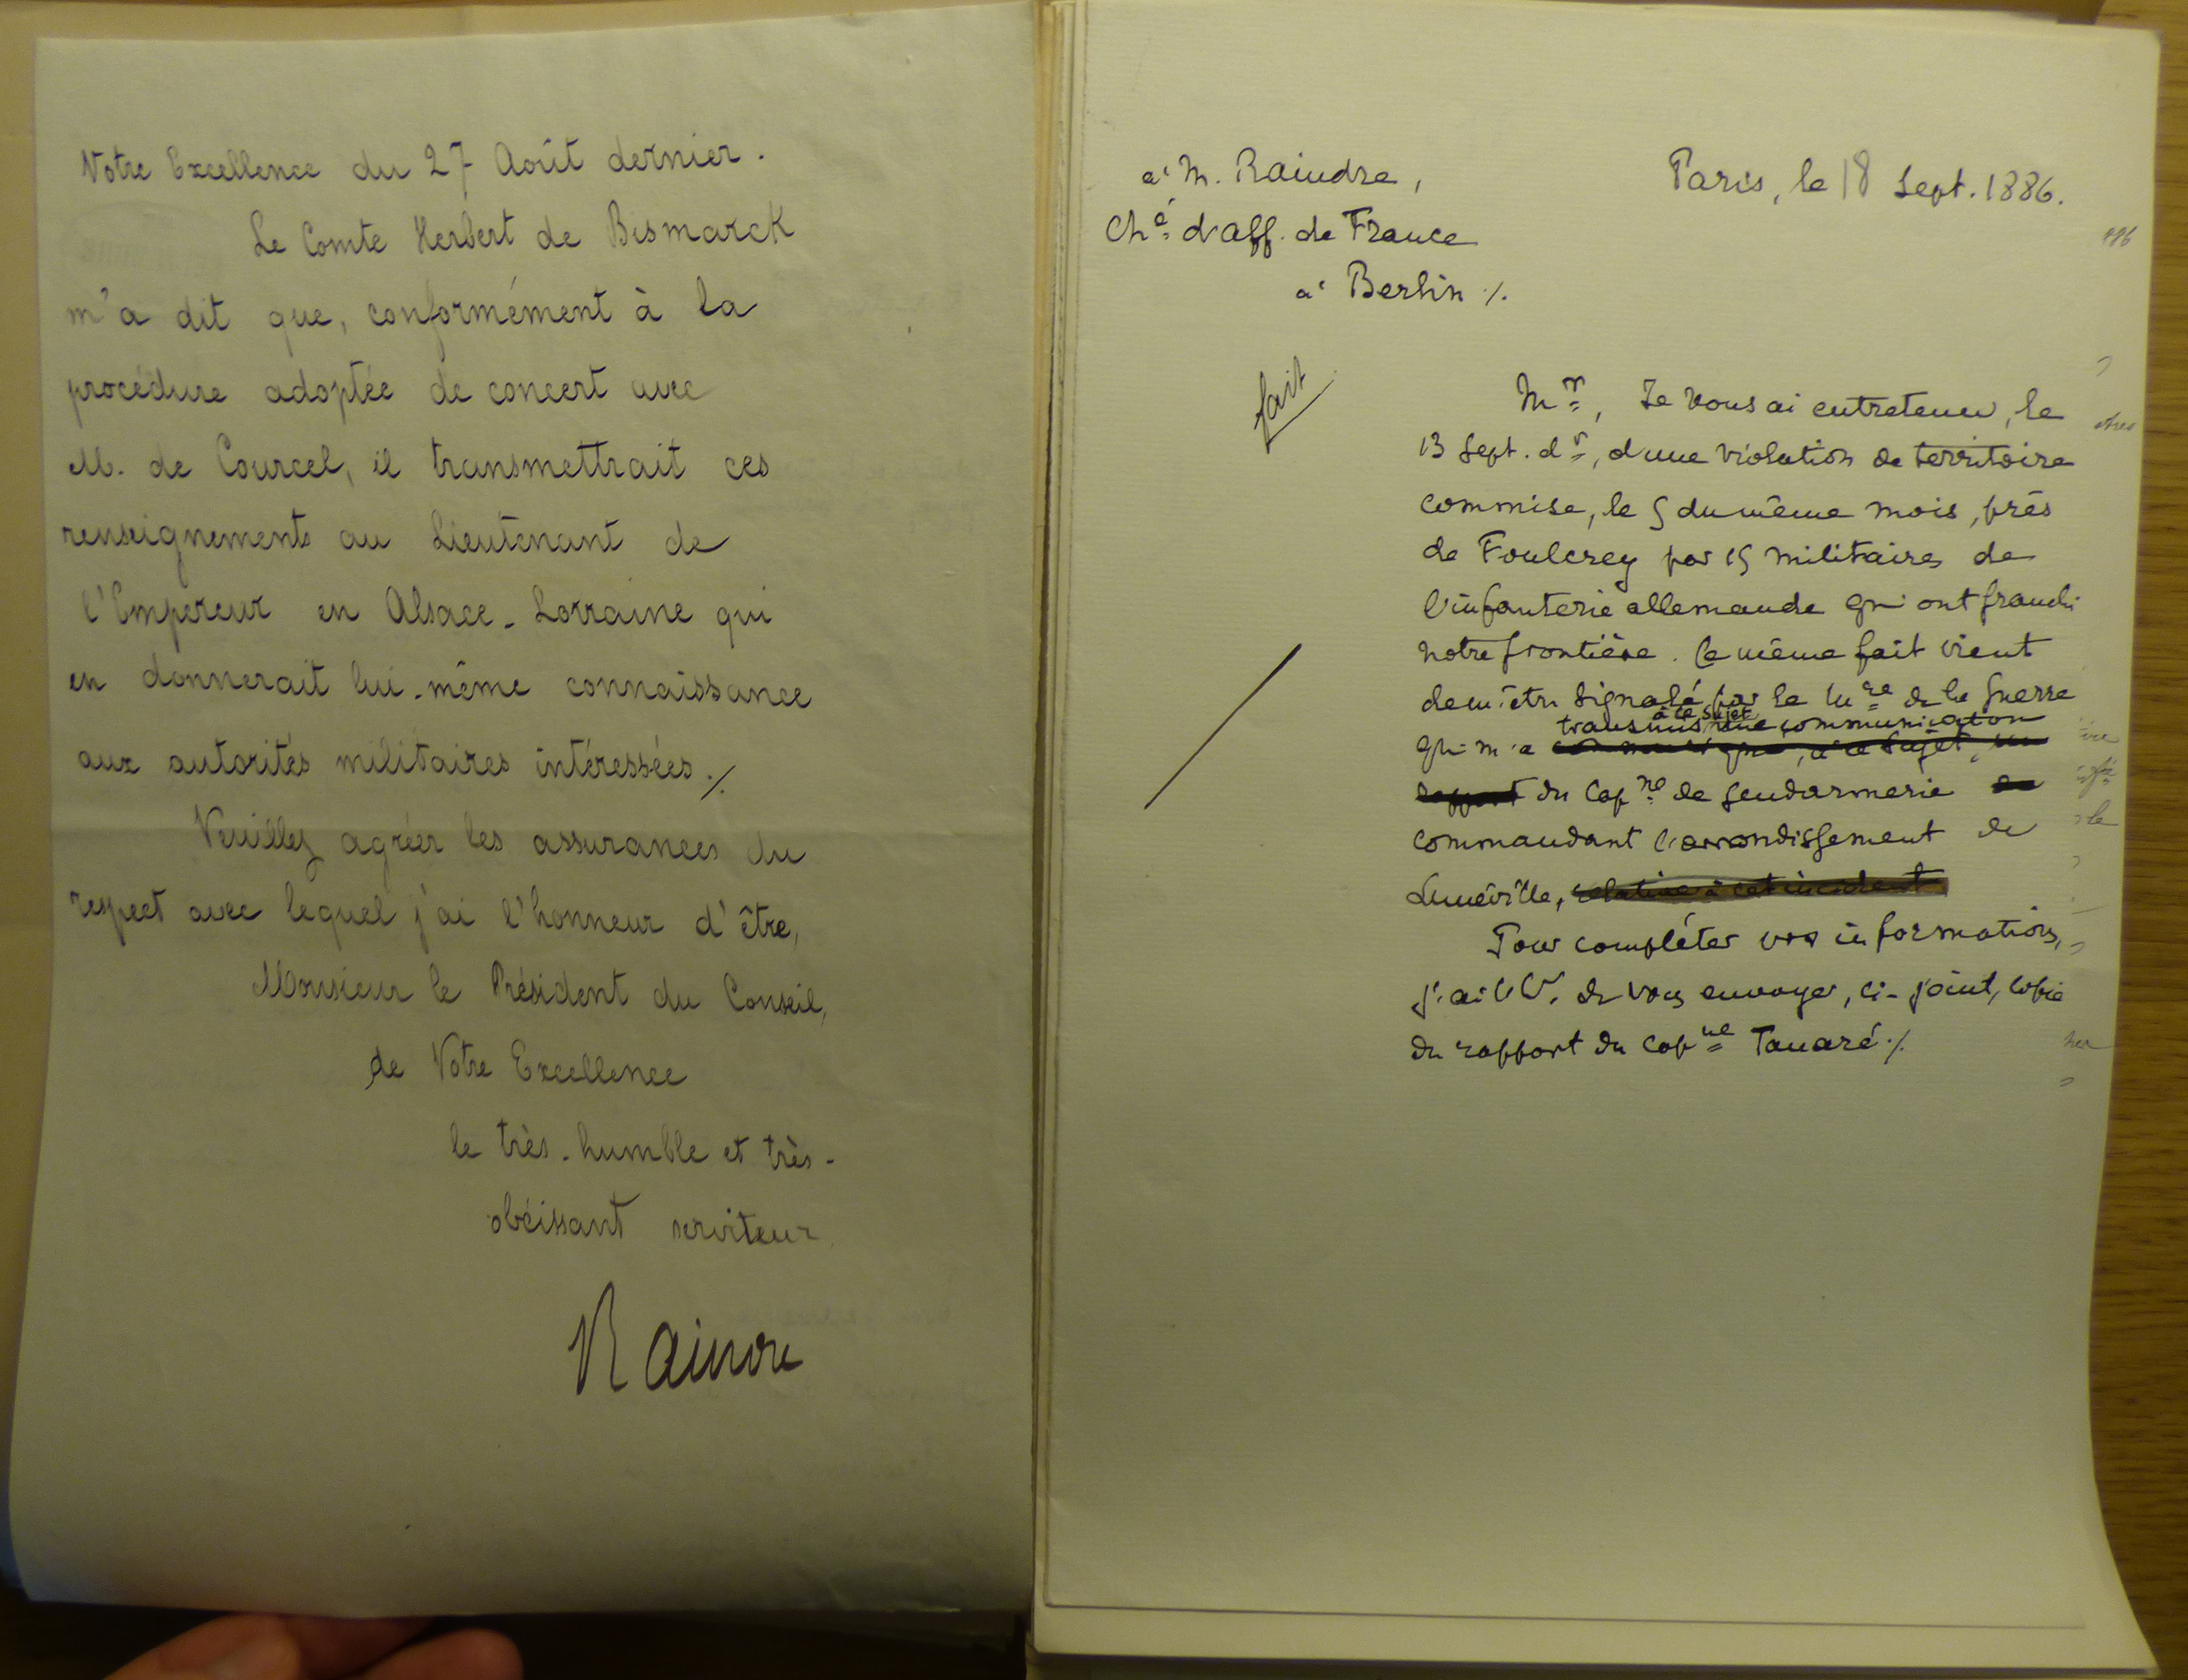 Votre Excellence du 27 Août dernier.
Le Comte Herbert de Bismarck
m'a dit que, conformément à la
procédure adoptée de concert avec
M. de Courcel, il transmettrait ces
renseignements au Lieutenant de
l'Empereur en Alsace-Lorraine qui
en donnerait lui-même connaissance
aux autorités militaires intéressées ./.
Veuillez agréer les assurances du
respect avec lequel j'ai l'honneur d'être,
Monsieur le Président du Conseil,
de Votre Excellence
le très-humble et très-
obéissant serviteur
Raindre
à M. Raindre,
Ché d'aff. de France
à Berlin ./.
Paris, le 18 Sept. 1886.
fait
Mr, Je vous ai entretenu, le
13 Sept. dr, d'une violation de territoire
commise, le 5 du même mois, près
de Foulcrey par 15 militaires de
l'infanterie allemande qui ont franchi
notre frontière. Ce même fait vient
de m'être signalé par le Mre de la Guerre
à ce sujet
transmis une communication
qui m'a
du Capne de gendarmerie
commandant l'arrondissement de
Lunéville, relative à cet incident
Pour compléter vos informations,
j'ai l'h. de vous envoyer, ci-joint, copie
du rapport du capne Tanaré ./.